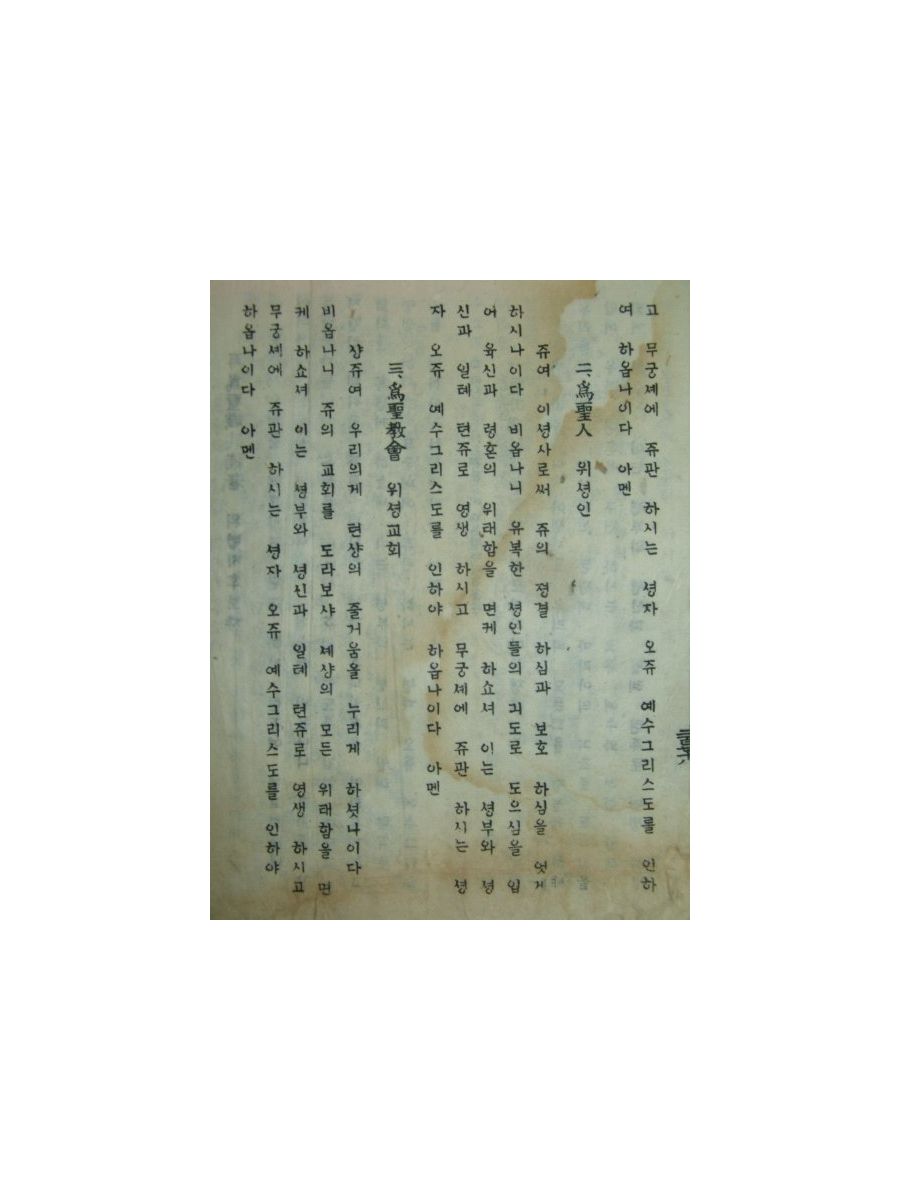 고 무궁셰에 쥬관 하시는 셩자 오쥬 예수그리스도를 인하
여 하옵나이다 아멘
二、爲聖人 위셩인
쥬여 이셩사로써 쥬의 졍결 하심과 보호 하심을 엇게
하시나이다 비옵나니 유복한 셩인들의 긔도로 도으심을 입
어 육신과 령혼의 위태함을 면케 하쇼셔 이는 셩부와 셩
신과 일톄 텬쥬로 영생 하시고 무궁셰에 쥬관 하시는 셩
자 오쥬 예수그리스도를 인하야 하옵나이다 아멘
三、爲聖敎會 위셩교회
샹쥬여 우리의게 텬샹의 줄거움을 누리게 하셧나이다
비옵나니 쥬의 교회를 도라보샤 셰샹의 모든 위태함을 면
케 하쇼셔 이는 셩부와 셩신과 일톄 텬쥬로 영생 하시고
무궁셰에 쥬관 하시는 셩자 오쥬 예수그리스도를 인하야
하옵나이다 아멘